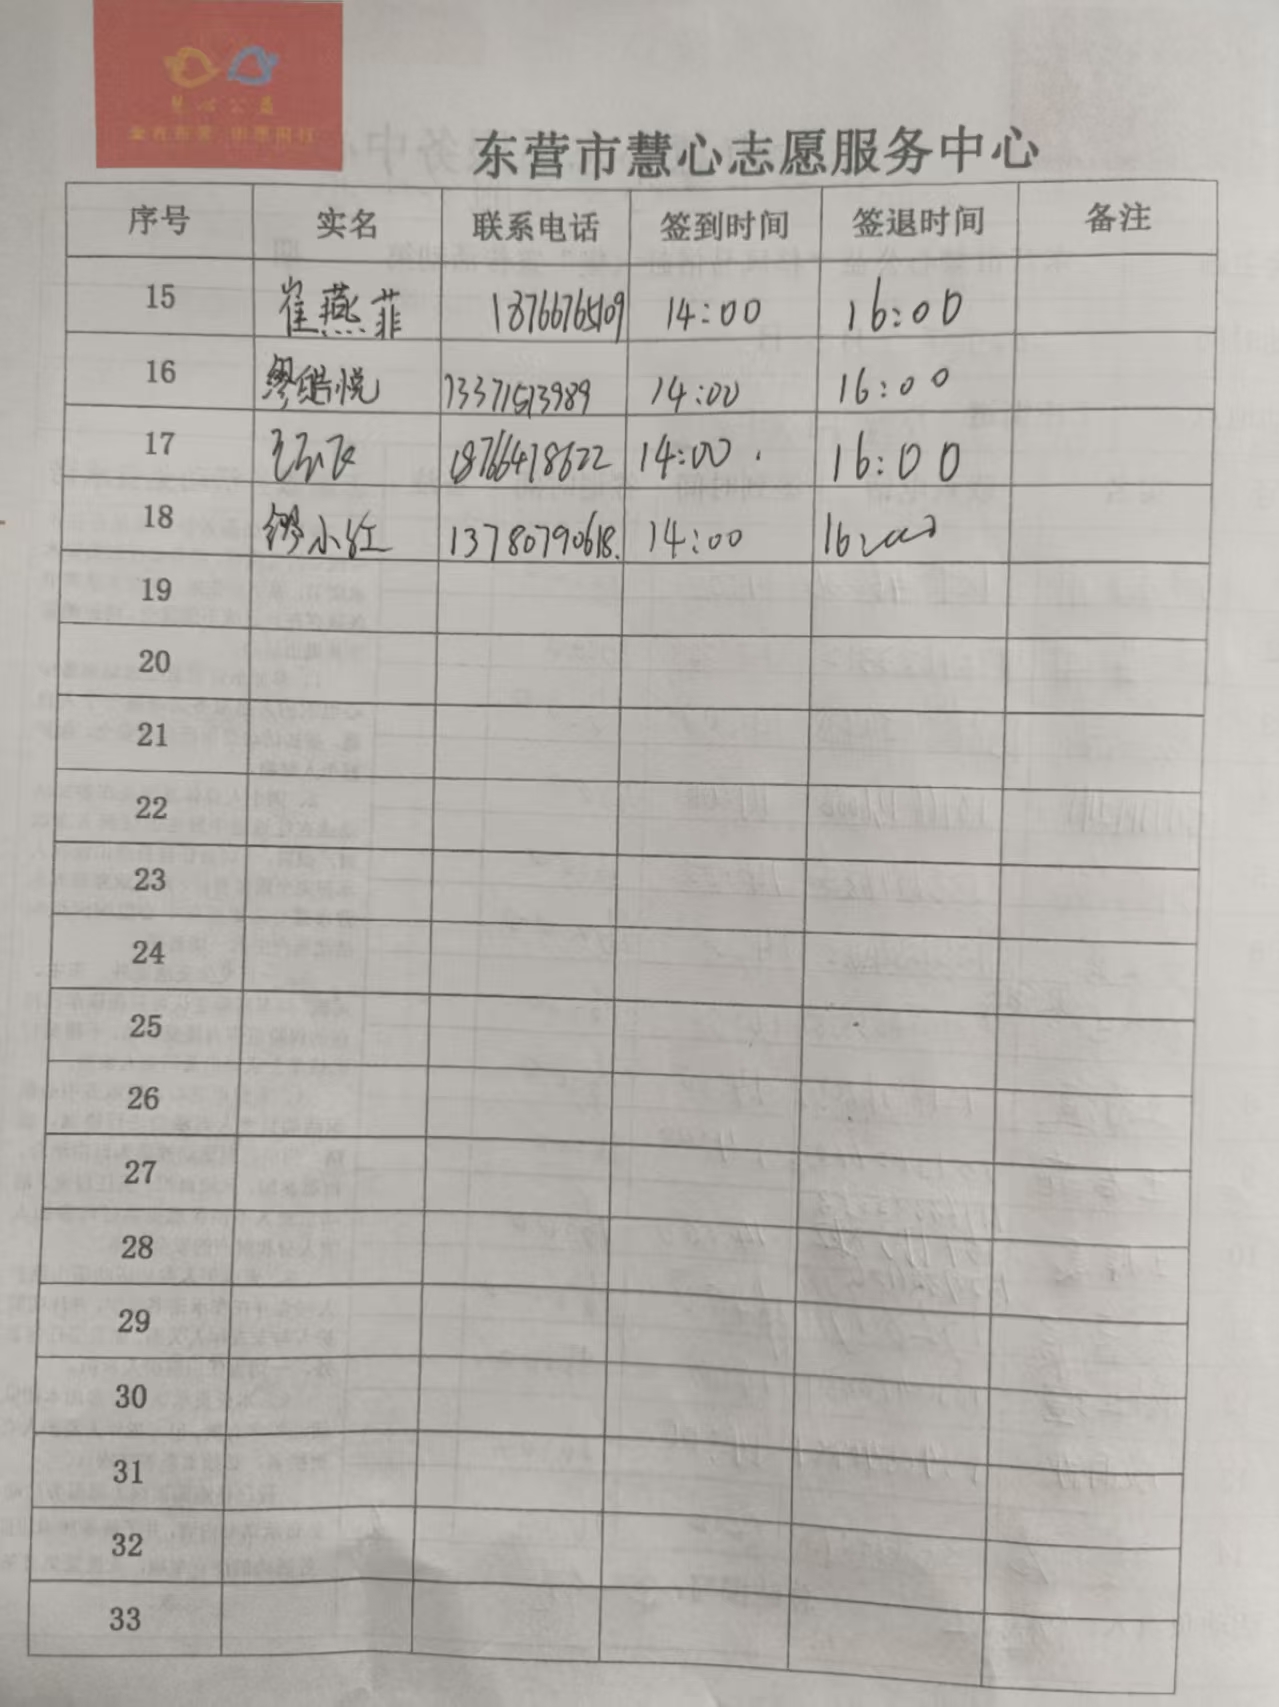 慧心公益
东营市慧心志愿服务中心
序号 实名 联系电话 签到时间 签退时间 备注
15 崔燕菲 18766765109 14:00 16:00
16 缪皓悦 13371513989 14:00 16:00
17 18766478622 14:00 16:00
18 缪小红 13780790618 14:00 16:00
19
20
21
22
23
24
25
26
27
28
29
30
31
32
33